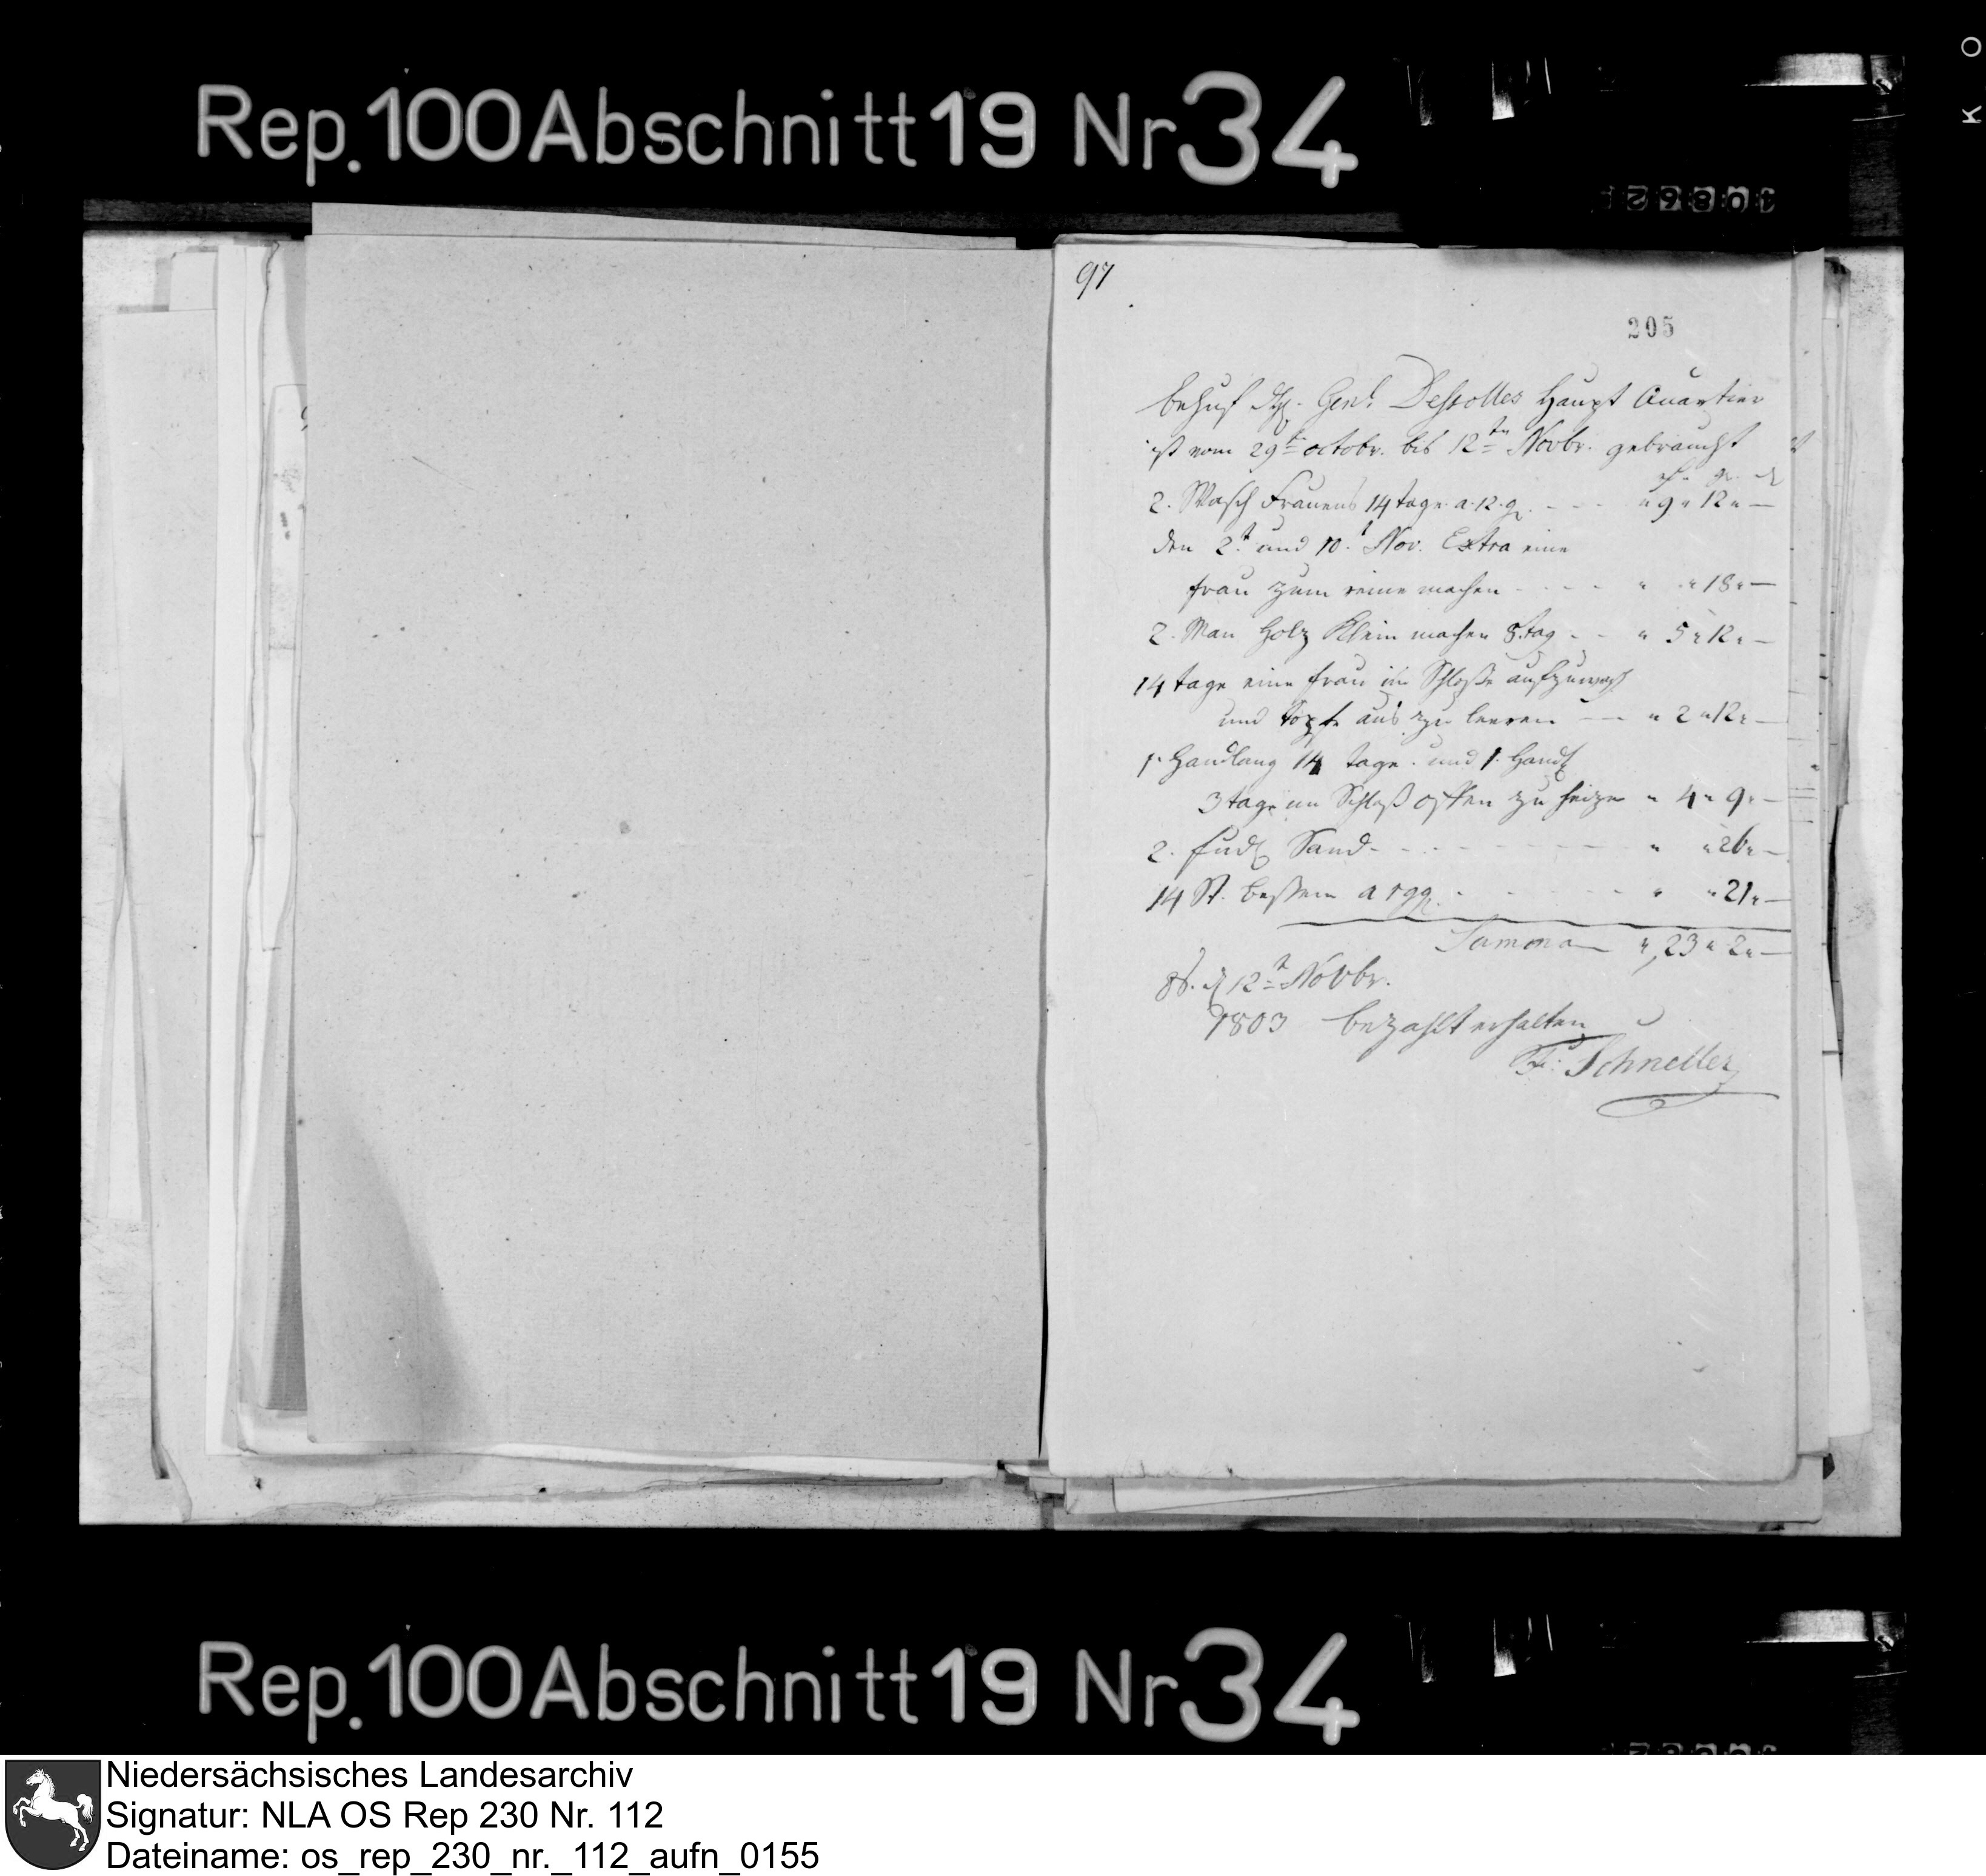 Rep. 100 Abschnitt 19 Nr 34
97
205
Behuf des Genl. Dessolles Haupt Quartier
ist vom 29ten octobr. bis 12ten Novbr. gebraucht
2. Wasch Frauens 14 tage a. 12. g. - - - " 9 " 12 " —
den 2t und 10.t Nov. Extra eine
frau zum reine machen - - - - " " 18 " —
2. Man Holz Klein machen 8. tag - - " 5 " 12 " —
14 tage eine frau im Schlosse
und töpfe aus zu leeren — " 2 " 12 " —
1. Handlang 14 tage. und 1. Handl
3 tage im Schloß offen zu heizen " 4 " 9 " —
2. fud Sand - - - - - - " " 26 " —
14 St. bessem a - - - - " " 21 " —
Summa " 23 " 2 " —
d 12t Novbr.
1803 bezahlt erhalten
Schneller
Rep. 100 Abschnitt 19 Nr 34
Niedersächsisches Landesarchiv
Signatur: NLA OS Rep 230 Nr. 112
Dateiname: os_rep_230_nr._112_aufn_0155